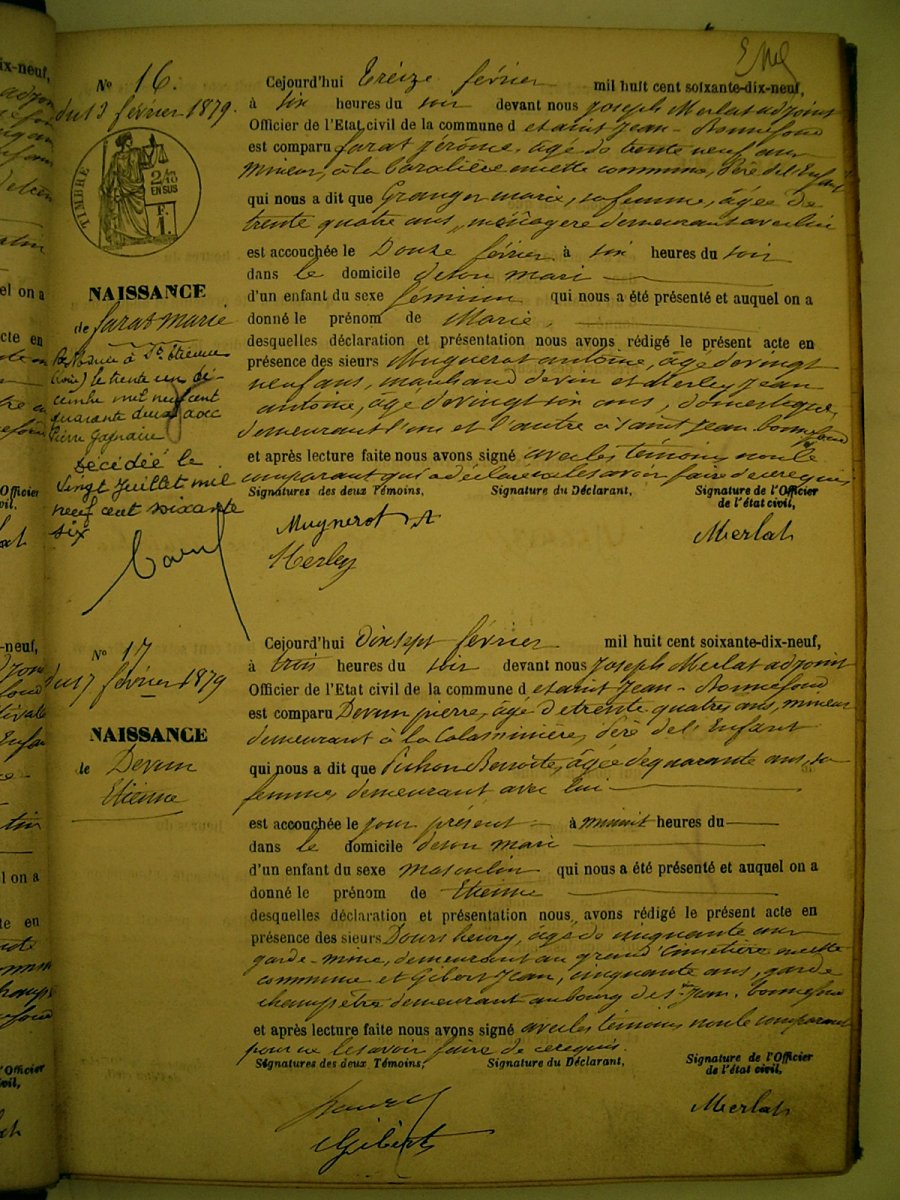 Nº 16.
du 13 février 1879.
TIMBRE
2/10
EN SUS
F.
1.
NAISSANCE
de farat marie
à St Etienne
(Loire) le trente un dé-
cembre mil neuf cent
quarante deux avec
Pierre
Décédée le
Vingt Juillet mil
neuf cent soixante
six
Cejourd'hui treize février mil huit cent soixante-dix-neuf,
à six heures du soir devant nous Joseph Merlat adjoint
Officier de l'Etat civil de la commune d e saint Jean-Bonnefond
est comparu farat jérôme, âgé de trente neuf ans
mineur, à la en cette commune, Père de l'Enfant
qui nous a dit que Granger marie, sa femme, âgée de
trente quatre ans, ménagère demeurant avec lui
est accouchée le Douze février à six heures du soir
dans le domicile de son mari
d'un enfant du sexe féminin qui nous a été présenté et auquel on a
donné le prénom de Marie.
desquelles déclaration et présentation nous avons rédigé le présent acte en
présence des sieurs Mugnerot antoine, âgé de vingt
neuf ans, marchand de vin et Merley Jean
antoine, âgé de vingt ans, domestique,
demeurant l'un et l'autre à saint Jean-bonnefond
et après lecture faite nous avons signé avec les témoins non le
comparant qui a déclaré ne les avoir faire de ce requis
Signatures des deux Témoins, Signature du Déclarant, Signature de l'Officier
de l'état civil,
Mugnerot A
Merley
Merlat
Nº 17
du 17 février 1879
NAISSANCE
de Devun
Etienne
Cejourd'hui dix sept février mil huit cent soixante-dix-neuf,
à trois heures du soir devant nous Joseph Merlat adjoint
Officier de l'Etat civil de la commune d e saint Jean-Bonnefond
est comparu Devun pierre, âgé de trente quatre ans, mineur
demeurant à la Calaminière, Père de l'Enfant
qui nous a dit que Pichon Benoite, âgée de quarante ans, sa
femme, demeurant avec lui
est accouchée le jour présent à minuit heures du
dans le domicile de son mari
d'un enfant du sexe masculin qui nous a été présenté et auquel on a
donné le prénom de Etienne
desquelles déclaration et présentation nous avons rédigé le présent acte en
présence des sieurs Dours henry, âgé de cinquante ans
garde-mine, demeurant au grand Cimetière en cette
commune et Gibert Jean, cinquante ans, garde
champêtre demeurant au bourg de St Jean-bonnefond
et après lecture faite nous avons signé avec les témoins non le comparant
pour ne le savoir faire de ce requis.
Signatures des deux Témoins, Signature du Déclarant, Signature de l'Officier
de l'état civil,
Gibert
Merlat